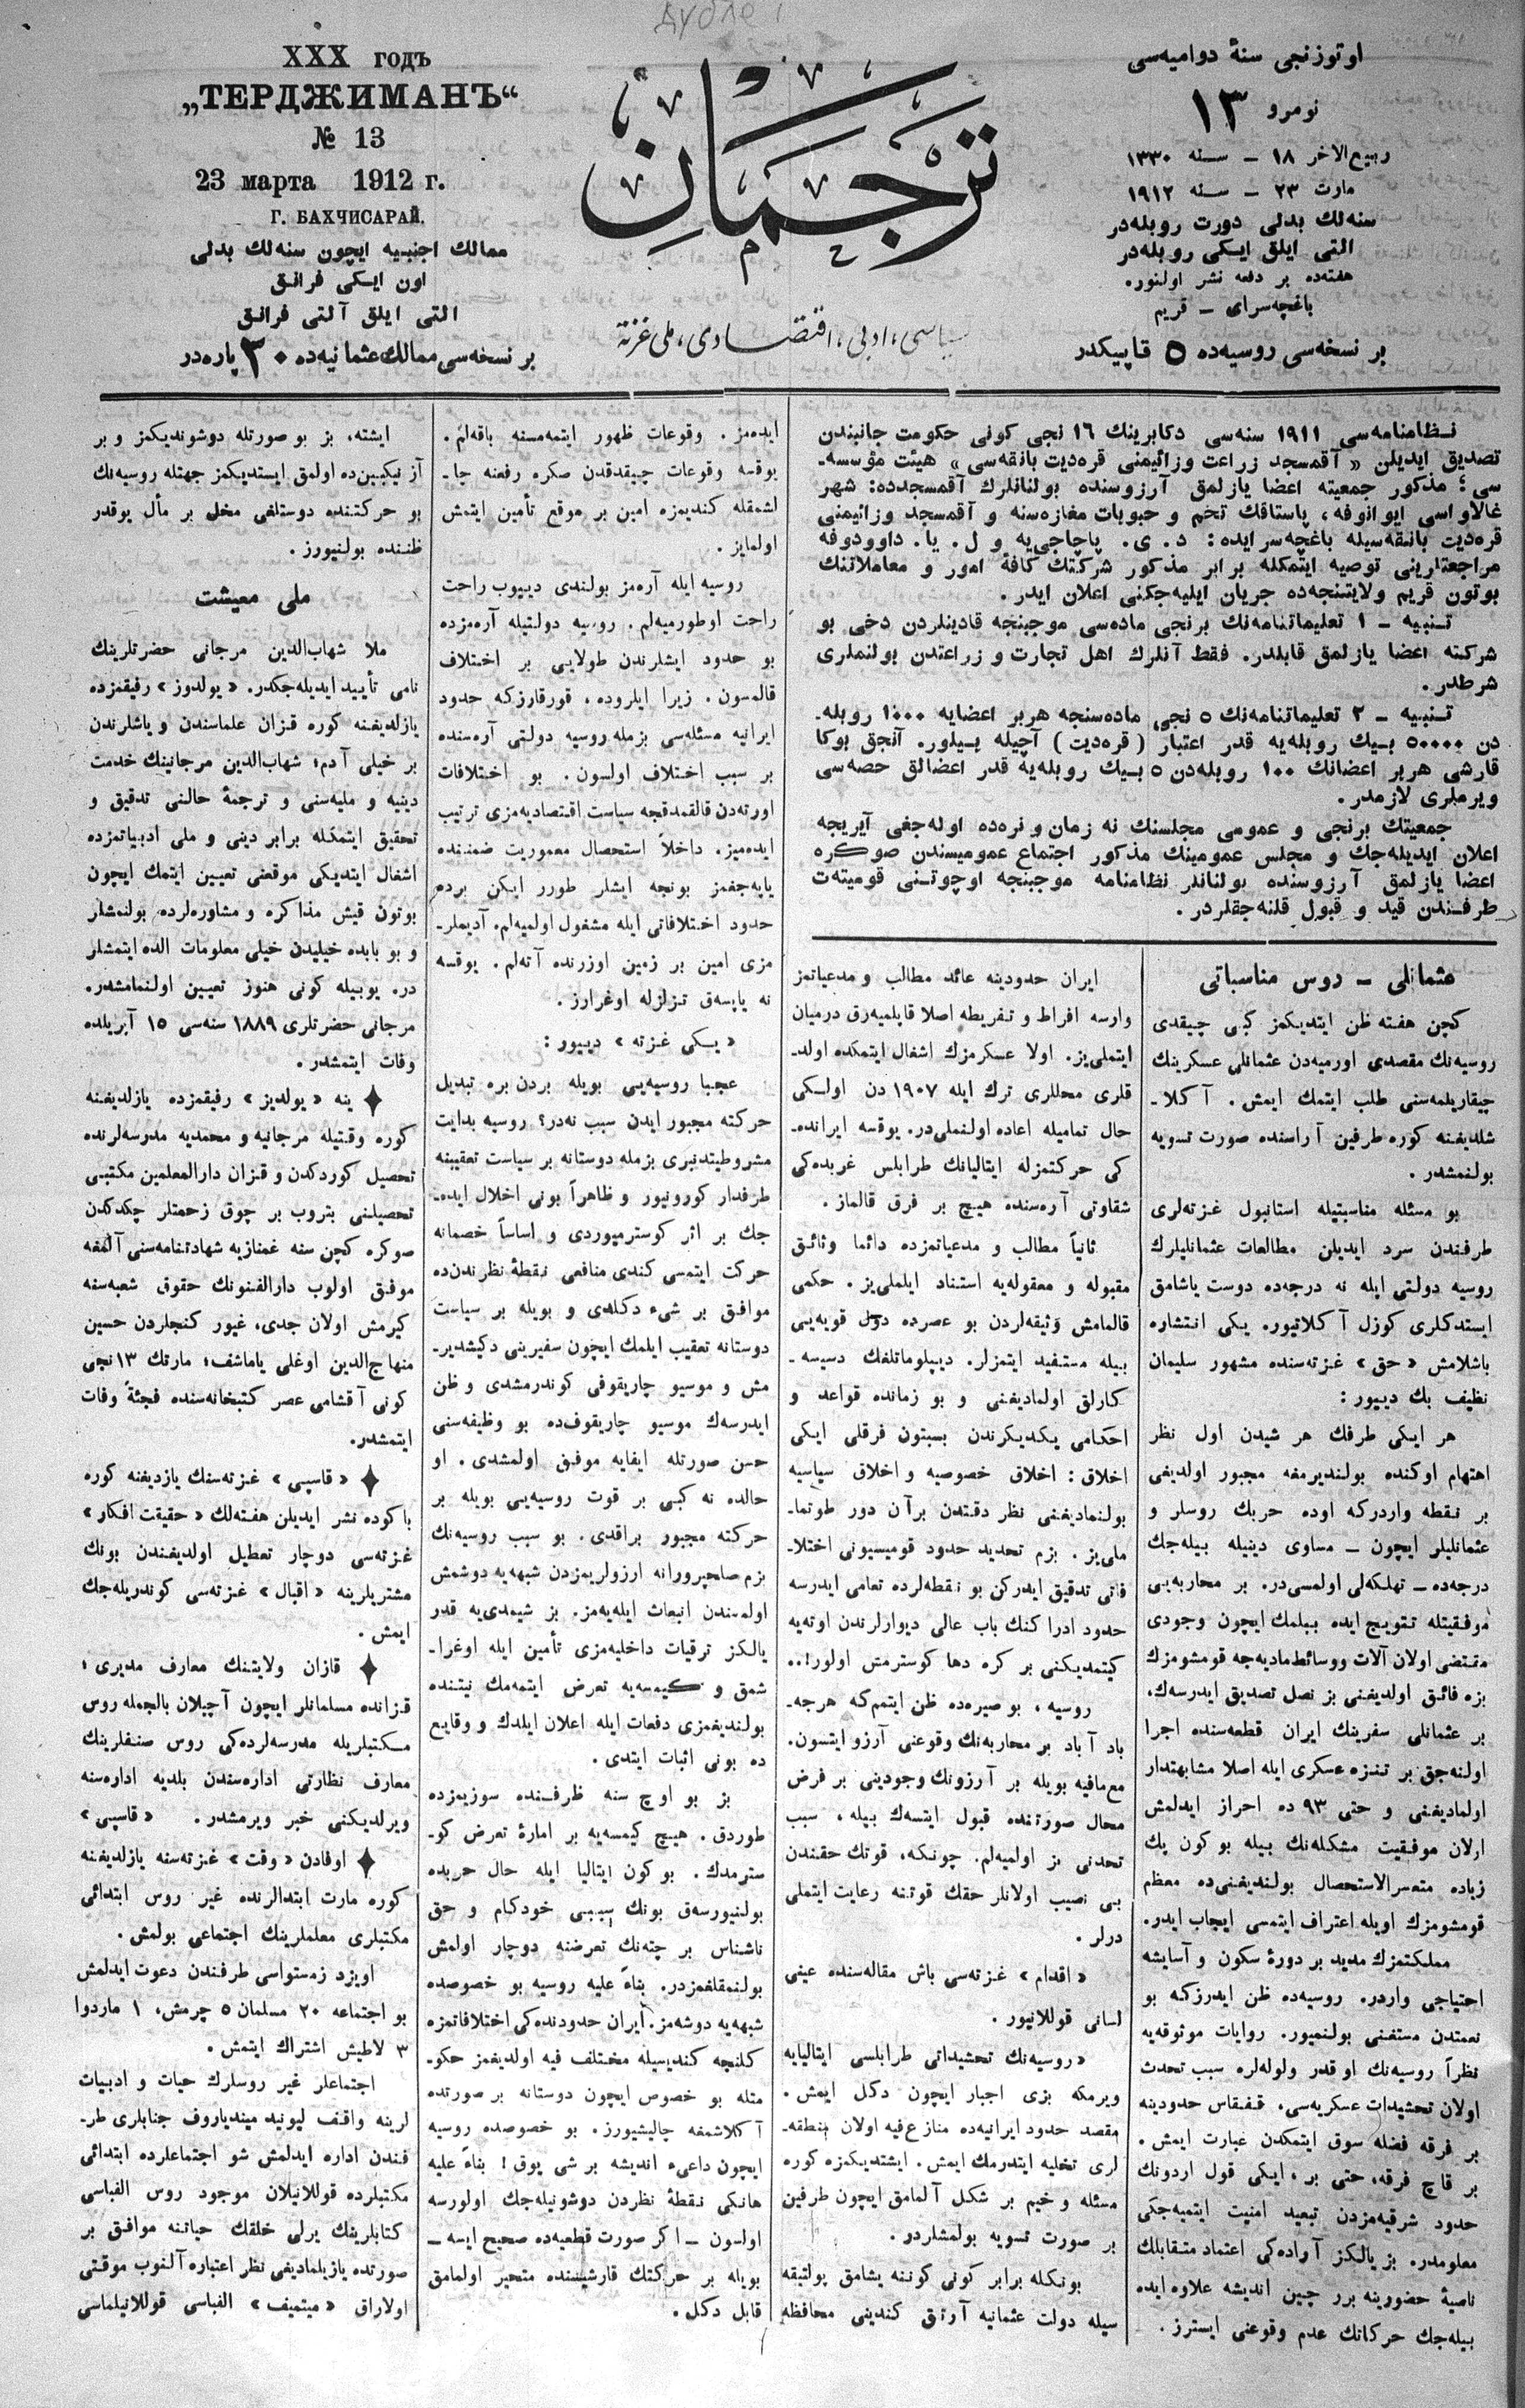 дубле 1
اوتوزنجی سنهٔ دوامیه‌سی
نومرو ١٣
ربیع‌الاخر ١٨ – سنه ١٣٣٠
مارت ٢٣ – سنه ١٩١٢
سنه‌لك بدلی دورت روبله‌در
التی ایلق ایکی روبله‌در
هفته‌ده بر دفعه نشر اولنور.
باغچه‌سرای – قریم
بر نسخه‌سی روسیه‌ده ٥ قاپیکدر
ترجمان
سیاسی، ادبی، اقتصادی، ملی غزته
XXX годъ
„ТЕРДЖИМАНЪ“
№ 13
23 марта 1912 г.
Г. БАХЧИСАРАЙ.
ممالك اجنبیه ایچون سنه‌لك بدلی
اون ایکی فرانق
التی ایلق آلتی فرانق
بر نسخه‌سی ممالك عثمانیه‌ده ٣٠ پاره‌در
نظامنامه‌سی ١٩١١ سنه‌سی دکابرینك ١٦ نجی کونی حکومت جانبندن
تصدیق ایدیلن « آقمسجد زراعت وزائیمنی قره‌دیت بانقه‌سی» هیئت مؤسسه‌ـ
سی؛ مذکور جمعیته اعضا یازلمق آرزوسنده بولنانلرك آقمسجدده: شهر
غالاواسی ایوانوفه، پاستاقك تخم و حبوبات مغازه‌سنه و آقمسجد وزائیمنی
قره‌دیت بانقه‌سیله باغچه‌سرایده: د. ی. پاچاجی‌یه و ل. یا. داوودوفه
مراجعتلرینی توصیه ایتمکله برابر مذکور شرکتك کافهٔ امور و معاملاتنك
بوتون قریم ولایتنجه‌ده جریان ایلیه‌جکنی اعلان ایدر.
تنبیه – ١ تعلیماتنامه‌نك برنجی ماده‌سی موجبنجه قادینلردن دخی بو
شرکته اعضا یازلمق قابلدر. فقط آنلرك اهل تجارت و زراعتدن بولنملری
شرطدر.
تنبیه – ٢ تعلیماتنامه‌نك ٥ نجی ماده‌سنجه هربر اعضایه ١٠٠٠ روبله‌ـ
دن ٥٠٠٠٠ بیك روبله‌یه قدر اعتبار ( قره‌دیت ) آچیله بیلور. آنجق بوکا
قارشی هربر اعضانك ١٠٠ روبله‌دن ٥ بیك روبله‌یه قدر اعضالق حصه‌سی
ویرملری لازمدر.
جمعیتك برنجی و عمومی مجلسنك نه زمان و نره‌ده اوله‌جغی آیریجه
اعلان ایدیله‌جك و مجلس عمومینك مذکور اجتماع عمومیسندن صوکره
اعضا یازلمق آرزوسنده بولنانلر نظامنامه موجبنجه اوچوتنی قومیته‌ت
طرفندن قید و قبول قلنه‌جقلردر.
عثمانلی – روس مناسباتی
کچن هفته ظن ایتدیکمز کبی چیقدی
روسیه‌نك مقصدی اورمیه‌دن عثمانلی عسکرینك
چیقاریلمه‌سنی طلب ایتمك ایمش. آکلاـ
شلدیغنه کوره طرفین آراسنده صورت تسویه
بولنمشدر.
بو مسئله مناسبتیله استانبول غزته‌لری
طرفندن سرد ایدیلن مطالعات عثمانلیلرك
روسیه دولتی ایله نه درجه‌ده دوست یاشامق
ایستدکلری کوزل آکلاتیور. یکی انتشاره
باشلامش «حق» غزته‌سنده مشهور سلیمان
نظیف بك دییور:
هر ایکی طرفك هر شیدن اول نظر
اهتمام اوکنده بولندیرمغه مجبور اولدیغی
بر نقطه واردرکه اوده حربك روسلر و
عثمانلیلر ایچون – مساوی دینیله بیله‌جك
درجه‌ده – تهلکه‌لی اولمسی‌در. بر محاربه‌یی
موفقیتله تتویج ایده بیلمك ایچون وجودی
مقتضی اولان آلات ووسائط مادیه‌جه قومشومزك
بزه فائق اولدیغنی بز نصل تصدیق ایدرسه‌ك،
بر عثمانلی سفرینك ایران قطعه‌سنده اجرا
اولنه‌جق بر تنزه عسکری ایله اصلا مشابهتدار
اولمادیغنی و حتی ٩٣ ده احراز ایدلمش
اولان موفقیت مشکله‌نك بیله بو کون پك
زیاده متعسرالاستحصال بولندیغنی‌ده معظم
قومشومزك اویله اعتراف ایتمسی ایجاب ایدر.
مملکتمزك مدید بر دورهٔ سکون و آسایشه
احتیاجی واردر. روسیه‌ده ظن ایدرزکه بو
نعمتدن مستغنی بولنمیور. روایات موثوقه‌یه
نظراً روسیه‌نك او قدر ولوله‌لره سبب تحدث
اولان تحشیدات عسکریه‌سی، قفقاس حدودینه
بر فرقه فضله سوق ایتمکدن عبارت ایمش.
بر قاچ فرقه، حتی بر، ایکی قول اردونك
حدود شرقیه‌مزدن تبعید امنیت ایتمیه‌جکی
معلومدر. بز یالکز آراده‌کی اعتماد متقابلك
ناصیهٔ حضورینه برر چین اندیشه علاوه ایده
بیله‌جك حرکاتك عدم وقوعنی ایسترز.
ایران حدودینه عائد مطالب و مدعیاتمز
وارسه افراط و تفریطه اصلا قابلمیه‌رق درمیان
ایتملی‌یز. اولا عسکرمزك اشغال ایتمکده اولدـ
قلری محللری ترك ایله ١٩٠٧ دن اولکی
حال تمامیله اعاده اولنملی‌در. یوقسه ایرانده‌ـ
کی حرکتمزله ایتالیانك طرابلس غربده‌کی
شقاوتی آره‌سنده هیچ بر فرق قالماز.
ثانیاً مطالب و مدعیاتمزده دائما وثائق
مقبوله و معقوله‌یه استناد ایلملی‌یز. حکمی
قالمامش وثیقه‌لردن بو عصرده دول قویه‌یی
بیله مستفید ایتمزلر. دیپلوماتلغك دسیسه‌ـ
کارلق اولمادیغنی و بو زمانده قواعد و
احکامی یکدیکرندن بسبتون فرقلی ایکی
اخلاق: اخلاق خصوصیه و اخلاق سیاسیه
بولنمادیغنی نظر دقتدن برآن دور طوتماـ
ملی‌یز. بزم تحدید حدود قومیسیونی اختلاـ
فاتی تدقیق ایدرکن بو نقطه‌لرده تعامی ایدرسه
حدود ادراکنك باب عالی دیوارلرندن اوته‌یه
کیتمدیکنی بر کره دها کوسترمش اولور!..
روسیه، بو صیره‌ده ظن ایتمم‌که هرچه‌ـ
باد آباد بر محاربه‌نك وقوعنی آرزو ایتسون.
مع‌مافیه بویله بر آرزونك وجودینی بر فرض
محال صورتنده قبول ایتسه‌ك بیله، سبب
تحدثی بز اولمیه‌لم. چونکه، قوتك حقندن
بی نصیب اولانلر حقك قوتنه رعایت ایتملی
درلر.
« اقدام » غزته‌سی باش مقاله‌سنده عینی
لسانی قوللانیور.
«روسیه‌نك تحشیداتی طرابلسی ایتالیایه
ویرمکه بزی اجبار ایچون دکل ایمش.
مقصد حدود ایرانیه‌ده منازع‌فیه اولان منطقه‌ـ
لری تخلیه ایتدرمك ایمش. ایشتدیکمزه کوره
مسئله وخیم بر شکل آلمامق ایچون طرفین
بر صورت تسویه بولمشلردر.
بونکله برابر کونی کوننه یشامق پولتیقه
سیله دولت عثمانیه آرتق کندینی محافظه
ایده‌مز. وقوعات ظهور ایتمه‌مسنه باقه‌لم.
یوقسه وقوعات چیقدقدن صکره رفعنه چاـ
لشمقله کندیمزه امین بر موقع تأمین ایتمش
اولمایز.
روسیه ایله آره‌مز بولندی دییوب راحت
راحت اوطورمیه‌لم. روسیه دولتیله آره‌مزده
بو حدود ایشلرندن طولایی بر اختلاف
قالمسون. زیرا ایلروده، قورقارزکه حدود
ایرانیه مسئله‌سی بزمله روسیه دولتی آره‌سنده
بر سبب اختلاف اولسون. بو اختلافات
اورته‌دن قالقمدقجه سیاست اقتصادیه‌مزی ترتیب
ایده‌میز. داخلاً استحصال معموریت ضمننده
یاپه‌جغمز بونجه ایشلر طورر ایکن برده
حدود اختلافاتی ایله مشغول اولمیه‌لم. آدیملرـ
مزی امین بر زمین اوزرنده آته‌لم. یوقسه
نه یاپسه‌ق تزلزله اوغرارز.
« یکی غزته » دییور:
عجبا روسیه‌یی بویله بردن بره تبدیل
حرکته مجبور ایدن سبب نه‌در؟ روسیه بدایت
مشروطیتدنبری بزمله دوستانه بر سیاست تعقیبنه
طرفدار کورونیور و ظاهراً بونی اخلال ایده‌ـ
جك بر اثر کوسترمیوردی و اساساً خصمانه
حرکت ایتمسی کندی منافعی نقطهٔ نظرندن‌ده
موافق بر شیء دکلدی و بویله بر سیاست
دوستانه تعقیب ایلمك ایچون سفیرینی دکیشدیرـ
مش و موسیو چاریقوفی کوندرمشدی و ظن
ایدرسه‌ك موسیو چاریقوف‌ده بو وظیفه‌سنی
حسن صورتله ایفایه موفق اولمشدی. او
حالده نه کبی بر قوت روسیه‌یی بویله بر
حرکته مجبور براقدی. بو سبب روسیه‌نك
بزم صلحپرورانه ارزولریمزدن شبهه‌یه دوشمش
اولمسندن انبعاث ایله‌یه‌مز. بز شیمدی‌یه قدر
یالکز ترقیات داخلیه‌مزی تأمین ایله اوغراـ
شمق و کیمسه‌یه تعرض ایتمه‌مك نیتنده
بولندیغمزی دفعات ایله اعلان ایلدك و وقایع
ده بونی اثبات ایتدی.
بز بو اوچ سنه ظرفنده سوزیمزده
طوردق. هیچ کیمسه‌یه بر امارهٔ تعرض کوـ
سترمدك. بو کون ایتالیا ایله حال حربده
بولنیورسه‌ق بونك سببی خودکام و حق
ناشناس بر چته‌نك تعرضنه دوچار اولمش
بولنمقلغمزدر. بناءً علیه روسیه بو خصوصده
شبهه‌یه دوشه‌مز. ایران حدودنده‌کی اختلافاتمزه
کلنجه کندیسیله مختلف فیه اولدیغمز حکوـ
متله بو خصوص ایچون دوستانه بر صورتده
آکلاشمغه چالیشیورز. بو خصوصده روسیه
ایچون داعیء اندیشه بر شی یوق! بناءً علیه
هانکی نقطهٔ نظردن دوشونیله‌جك اولورسه
اولسون – اکر صورت قطعیه‌ده صحیح ایسه –
بویله بر حرکتك قارشیسنده متحیر اولمامق
قابل دکل.
ایشته، بز بو صورتله دوشوندیکمز و بر
آز نیکبین‌ده اولمق ایستدیکمز جهتله روسیه‌نك
بو حرکتنده دوستلغی مخل بر مأل یوقدر
ظننده بولنیورز.
ملی معیشت
ملا شهاب‌الدین مرجانی حضرتلرینك
نامی تأیید ایدیله‌جکدر. «یولدوز» رفیقمزده
یازلدیغنه کوره قزان علماسندن و یاشلرندن
بر خیلی آدم؛ شهاب‌الدین مرجانینك خدمت
دینیه و ملیه‌سنی و ترجمهٔ حالنی تدقیق و
تحقیق ایتمکله برابر دینی و ملی ادبیاتمزده
اشغال ایتدیکی موقعنی تعیین ایتمك ایچون
بوتون قیش مذاکره و مشاوره‌لرده بولنمشلر
و بو بابده خیلیدن خیلی معلومات الده ایتمشلر
در. یوبیله کونی هنوز تعیین اولنمامشدر.
مرجانی حضرتلری ١٨٨٩ سنه‌سی ١٥ آپریلده
وفات ایتمشدر.
✦ ینه «یولدیز» رفیقمزده یازلدیغنه
کوره وقتیله مرجانیه و محمدیه مدرسه‌لرنده
تحصیل کوردکدن و قزان دارالمعلمین مکتبیی
تحصیلنی بتروب بر چوق زحمتلر چکدکدن
صوکره کچن سنه غمنازیه شهادتنامه‌سنی آلمغه
موفق اولوب دارالفنونك حقوق شعبه‌سنه
کیرمش اولان جدی، غیور کنجلردن حسین
منهاج‌الدین اوغلی یاماشف؛ مارتك ١٣ نجی
کونی آقشامی عصر کتبخانه‌سنده فجئةً وفات
ایتمشدر.
✦ « قاسپی » غزته‌سنك یازدیغنه کوره
باکوده نشر ایدیلن هفته‌لك «حقیقت افکار»
غزته‌سی دوچار تعطیل اولدیغندن بونك
مشتریلرینه «اقبال» غزته‌سی کوندریله‌جك
ایمش.
✦ قازان ولایتنك معارف مدیری؛
قزانده مسلمانلر ایچون آچیلان بالجمله روس
مکتبلریله مدرسه‌لرده‌کی روس صنفلرینك
معارف نظارتی اداره‌سندن بلدیه اداره‌سنه
ویرلدیکنی خبر ویرمشدر. «قاسپی»
✦ اوفادن «وقت» غزته‌سنه یازلدیغنه
کوره مارت ابتدالرنده غیر روس ابتدائی
مکتبلری معلملرینك اجتماعی بولمش.
اویزد زمستواسی طرفندن دعوت ایدلمش
بو اجتماعه ٢٠ مسلمان ٥ چرمش، ١ ماردوا
٣ لاطیش اشتراك ایتمش.
اجتماعلر غیر روسلرك حیات و ادبیات
لرینه واقف لیونید میندیاروف جنابلری طرـ
فندن اداره ایدلمش شو اجتماعلرده ابتدائی
مکتبلرده قوللانیلان موجود روس الفباسی
کتابلرینك یرلی خلقك حیاتنه موافق بر
صورتده یازیلمادیغی نظر اعتباره آلنوب موقتی
اولاراق «میتمیف» الفباسی قوللانیلماسی